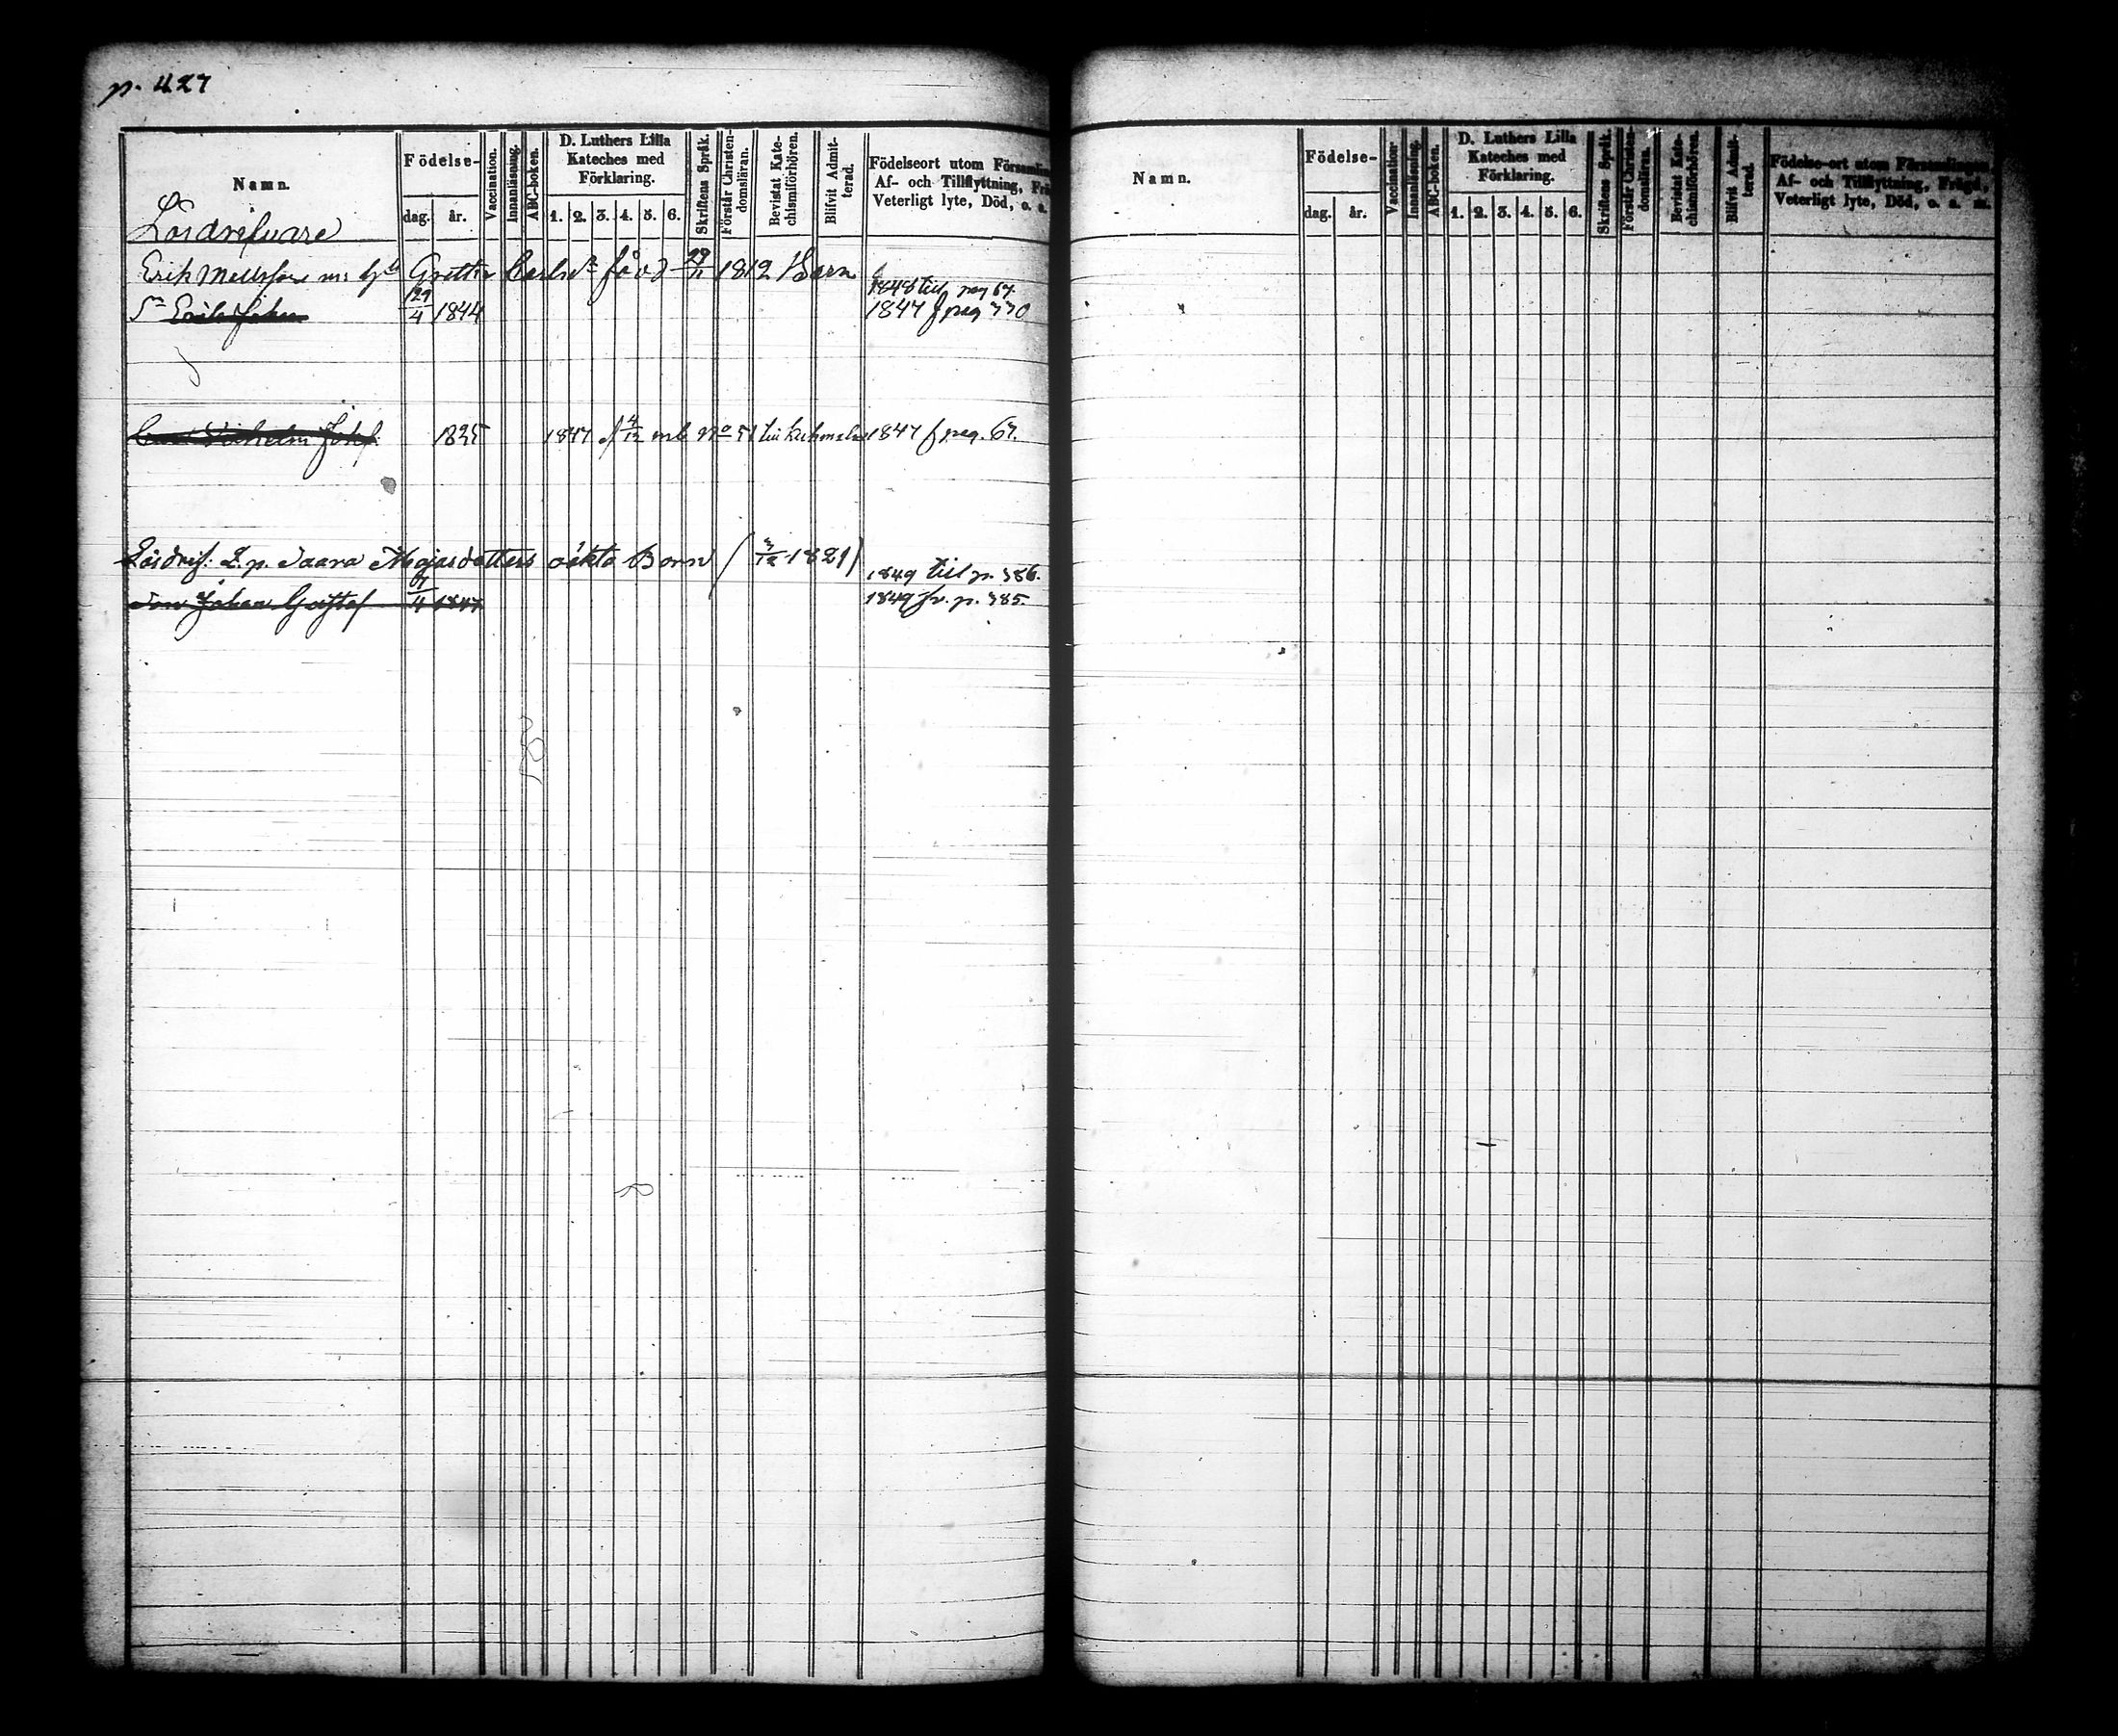 p. 427
Namn.
Födelse-
dag. år.
Vaccination.
Innanläsning.
ABC-boken.
D. Luthers Lilla
Kateches med
Förklaring.
1. 2. 3. 4. 5. 6.
Skriftens Språk.
Förstår Christen-
domsläran.
Bevistat Kate-
chismiförhören.
Blifvit Admit-
terad.
Födelseort utom Församlin
Af- och Tillflyttning, Frä
Veterligt lyte, Död, o. a.
Lösdrifvare
Erik Gretta Carlsdr 29/11 1812 Barn
1848 till pag 67.
Sn Erik Johan 29/4 1844 1847 f pag 330
Vilhelm Josef 1825 1847 f 4/12 mb No 51 till 1847 f pag. 67.
Lösdrif. L. p. Saara Majasdotters oäkta Barn (3/12 1821)
1849 till p. 386.
Son Johan Gustaf 1847 1849 fr. p. 385.
Namn.
Födelse-
dag. år.
Vaccination
Innanläsning.
ABC-boken.
D. Luthers Lilla
Kateches med
Förklaring.
1. 2. 3. 4. 5. 6.
Skriftens Språk.
Förstår Christen-
domsläran.
Bevistat Kate-
chismiförhören.
Blifvit Admit-
terad.
Födelse-ort utom Församlingen,
Af- och Tillflyttning, Frägd,
Veterligt lyte, Död, o. a. m.